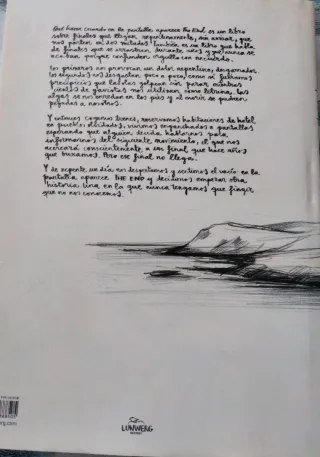 Qué hacer cuando en la pantalla aparece The End es un libro
sobre finales que llegan repentinamente, sin avisar, que
nos parten en dos mitades. También es un libro que habla
de finales que se arrastran durante años y que nunca se
acaban porque confunden orgullo con recuerdo.
Los primeros un dolor repentino,
los segundos nos desgastan poco a poco, como si fuéramos
precipicios que las olas golpean sin parar mientras
cientos de gaviotas nos utilizan como letrina, las
algas se nos enredan en los pies y al morir se pudren
pegadas a nosotros.
Y entonces cogemos trenes, reservamos habitaciones de hotel
en pueblos olvidados, vivimos enganchados a pantallas
esperando que alguien decida hablarnos para
informarnos del siguiente movimiento, el que nos
acercará conscientemente a un final que hace años
que buscamos. Pero ese final no llega.
Y de repente, un día nos despertamos y sentimos el vacío, en la
pantalla aparece THE END y decidimos empezar otra
historia. Una en la que nunca tengamos que fingir
que no nos conocemos.
LUNWERG